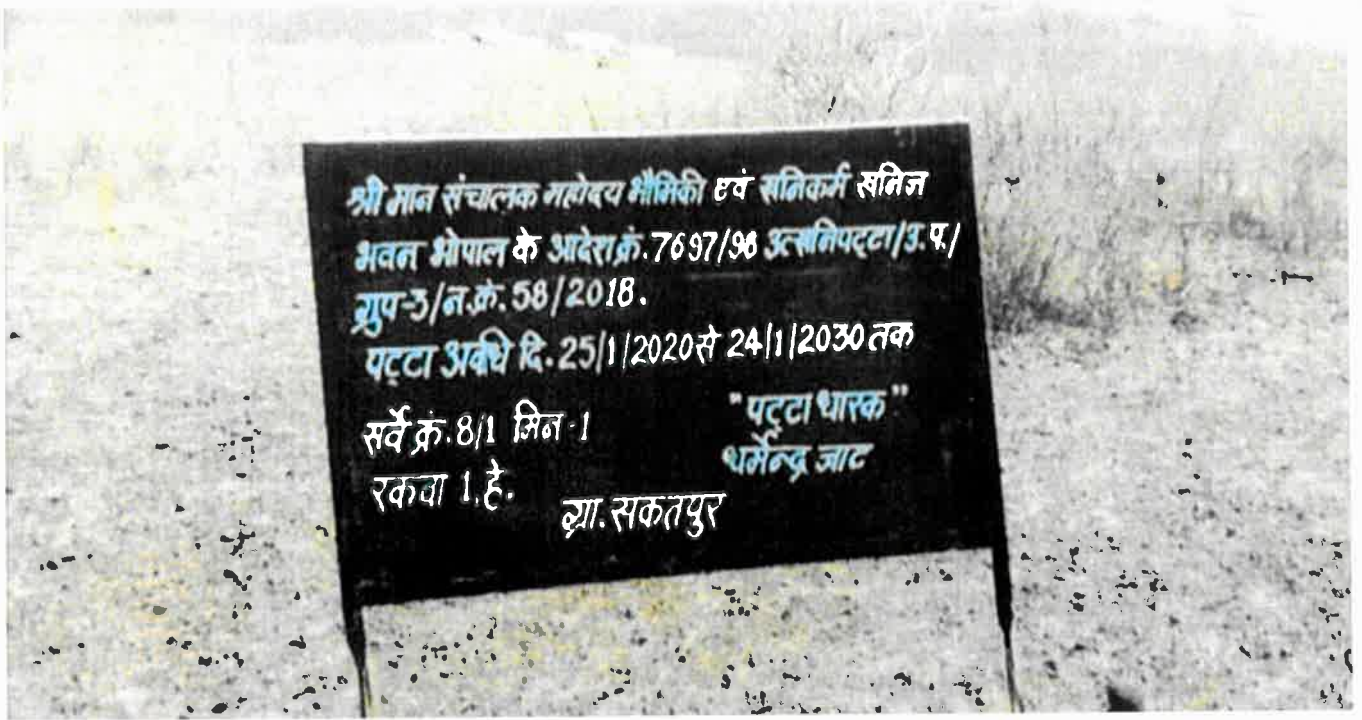 श्री मान संचालक महोदय भौमिकी एवं खनिकर्म खनिज
भवन भोपाल के आदेश क्रं. 7697/98 उत्खनिपट्टा/उ.प./
ग्रुप-3/न.क्रं. 58/2018.
पट्टा अवधि दि. 25/1/2020 से 24/1/2030 तक
"पट्टा धारक"
सर्वे क्रं. 8/1 मिन-1
धर्मेन्द्र जाट
रकवा 1.हे.
ग्रा. सकतपुर